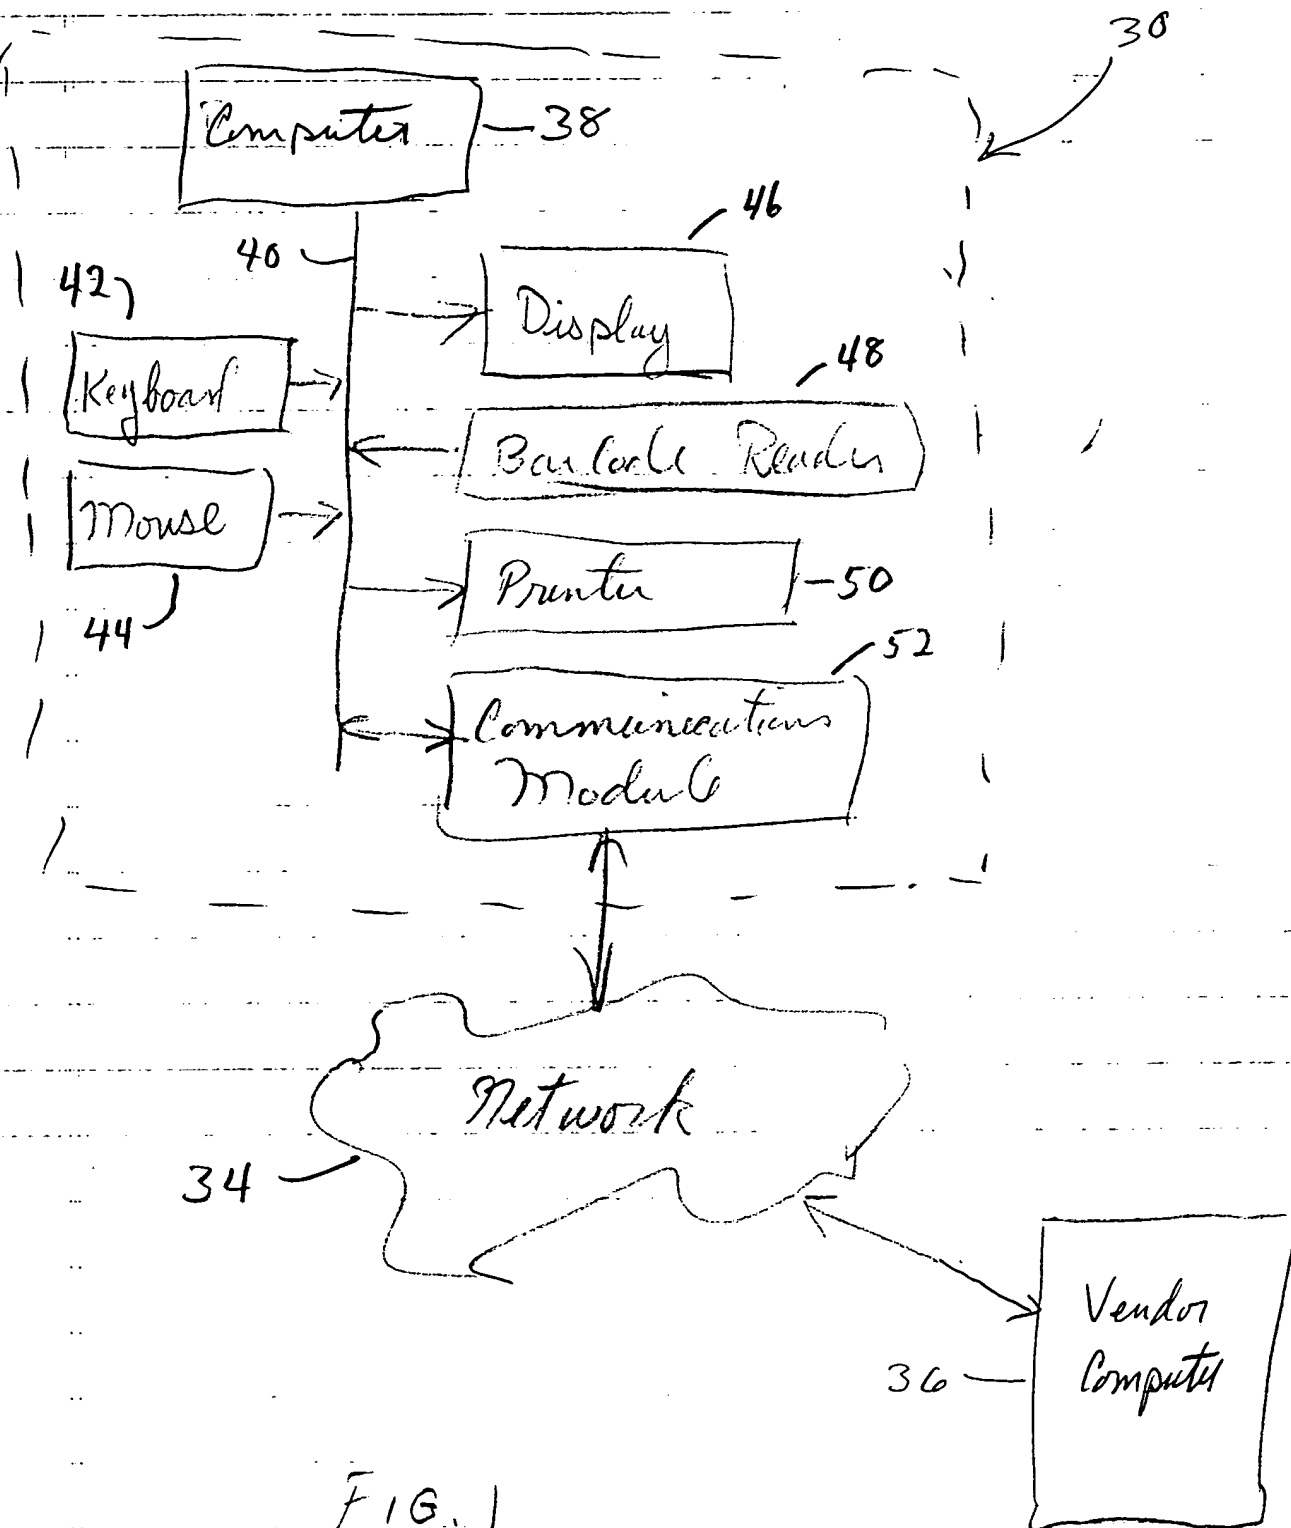 30
Computer
38
46
40
42
Display
48
Keyboard
Bar Code Reader
Mouse
Printer
50
44
52
Communications
Module
Network
34
Vendor
Computer
36
FIG. 1